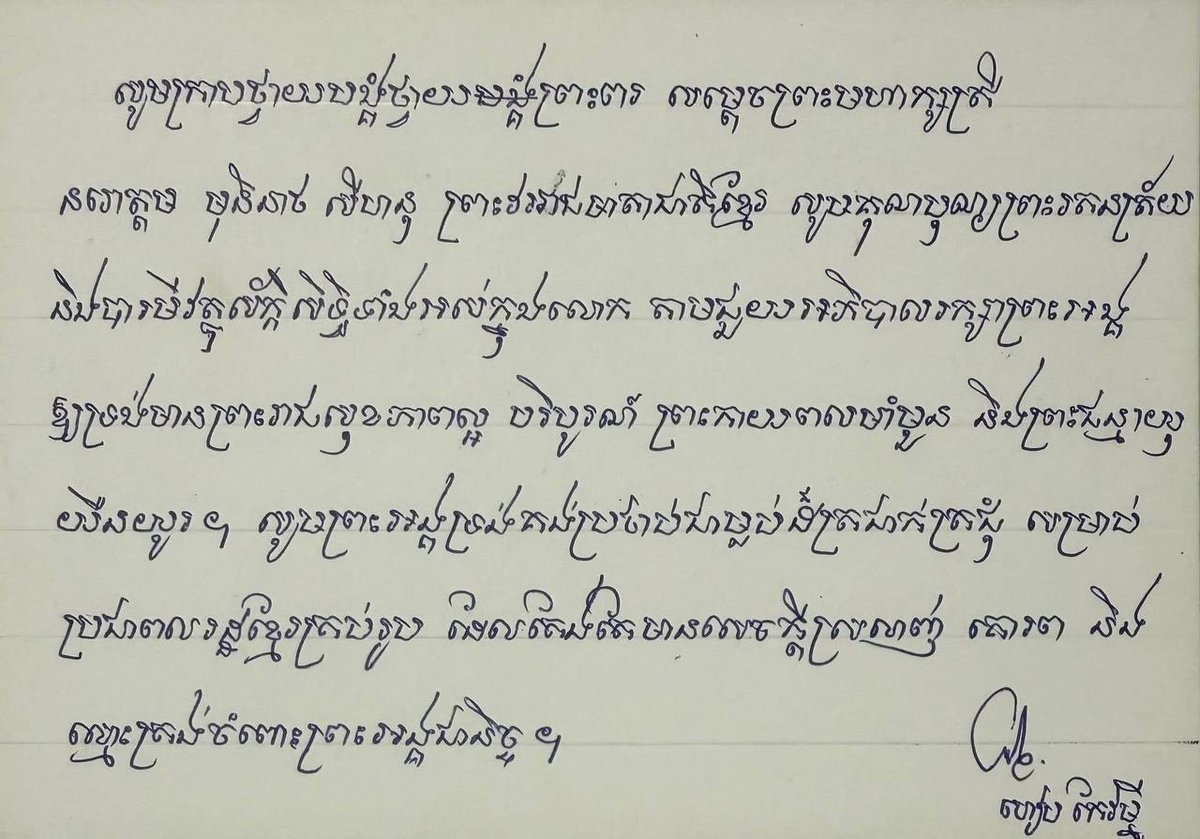 សូមក្រាបថ្វាយបង្គំថ្វាយព្រះពរ សម្តេចព្រះមហាក្សត្រី
នរោត្តម មុនិនាថ សីហនុ ព្រះវររាជមាតាជាតិខ្មែរ សូមគុណបុណ្យព្រះរតនត្រ័យ
និងបារមីវត្ថុស័ក្តិសិទ្ធិទាំងអស់ក្នុងលោក តាមជួយអភិបាលរក្សាព្រះអង្គ
ឱ្យទ្រង់មានព្រះរាជសុខភាពល្អ បរិបូរណ៍ ព្រះកាយពលមាំមួន និងព្រះជន្មាយុ
យឺនយូរ។ សូមព្រះអង្គទ្រង់គង់ប្រថាប់ជាម្លប់ដ៏ត្រជាក់ត្រជុំ សម្រាប់
ប្រជាពលរដ្ឋខ្មែរគ្រប់រូប ដែលតែងតែមានសេចក្តីស្រលាញ់ គោរព និង
ស្មោះត្រង់ចំពោះព្រះអង្គជានិច្ច។